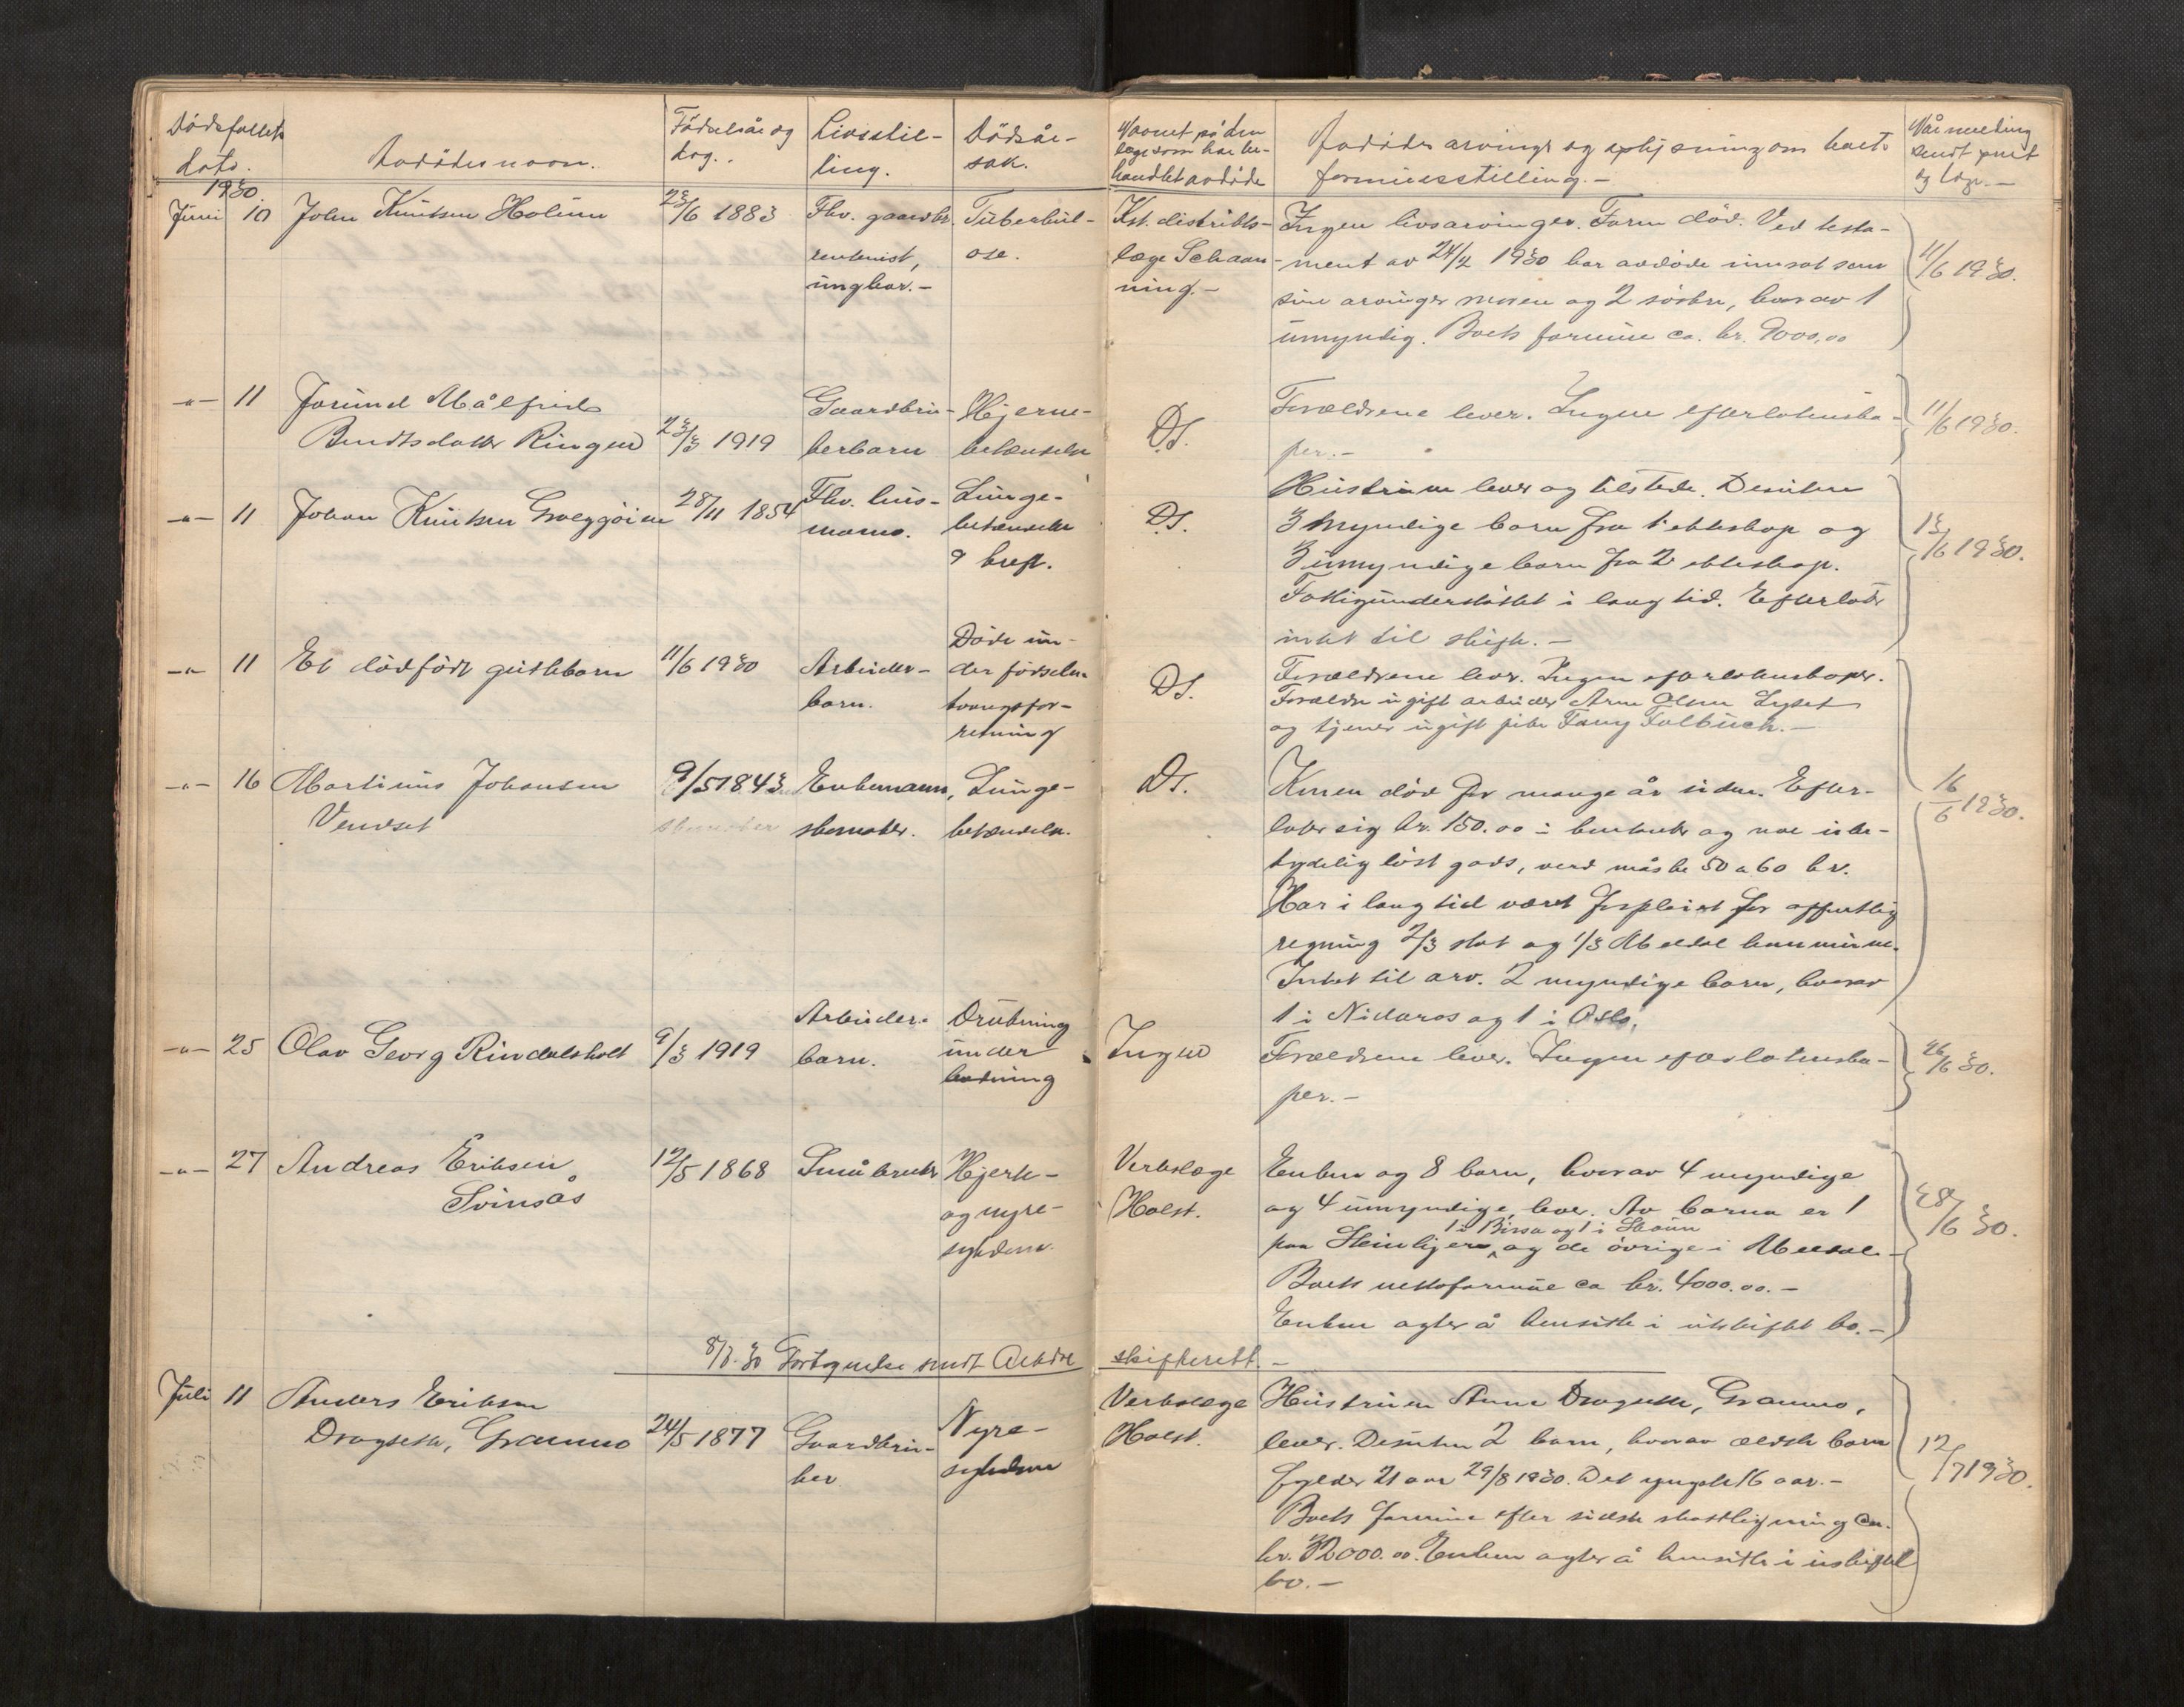 Dødsfallets dato. | Avdødes navn. | Fødselsår og dag. | Livsstilling. | Dødsårsak. | Navnet på den læge som har behandlet avdøde | Avdødes arvinger og oplysning om boets formuesstilling.- | Når melding sendt prest og
1930
Juni 10 John Knutsen Holum 23/6 1883 Fhv. gaardbr. Tuberkul- Kst. distrikts- Ingen livsarvinger. Faren død. Ved testa-
rentenist, ose. læge Schaan- ment av 24/2 1930 har avdøde innsat som 11/6 1930.
ungkar.- ning.- sine arvinger moren og 2 søskn, hvorav 1
umyndig. Boets formue ca. kr. 9000,00
-"- 11 Jorund Målfrid Gaardbru- Hjerne- Forældrene lever. Ingen efterlatenska- 11/6 1930.
Bendtsdatter Ringen 23/3 1919 kerbarn betændelse DS. per.-
Hustruen lever og tilstede. Desuten
-"- 11 Johan Knutsen 28/11 1854 Fhv. hus- Lunge- DS. 3 myndige barn fra 1 ekteskap og 13/6 1930.
mann. betændelse 3 umyndige barn fra 2 ekteskap.
Fattigunderstøttet i lang tid. Efterlater
intet til skifte.-
-"- 11 Et dødfødt guttebarn 11/6 1930 Arbeider- Døde un- DS. Forældrene lever. Ingen efterlatenskaper.
barn. der fødselen Forældre ugift arbeider Arne Olsen
tvangsfor- og tjener ugift pike Fanny Folbuch.-
retning
-"- 16 Martinus Johansen 9/5 1843 Enkemann, Lunge- DS. Konen død for mange år siden. Efter- 16/6 1930.
Vendset skomaker. betændelse. later sig kr. 150.00 i kontanter og noe ube-
tydelig løst gods, verd måske 50 a 60 kr.
Har i lang tid været forpleiet for offentlig
regning 2/3 stat og 1/3 Meldal kommune.
Intet til arv. 2 myndige barn, hvorav
1 i Nidaros og 1 i Oslo.
-"- 25 Olav Georg Rindalsholt 9/3 1919 Arbeider- Drukning Ingen Forældrene lever. Ingen efterlatenska- 26/6 30.
barn. under per.-
badning
-"- 27 Andreas Eriksen 12/5 1868 Småbruker Hjerte- Verkslæge Enken og 8 barn, hvorav 4 myndige
Svinsås og nyre- Holst. og 4 umyndige, lever. Av barna er 1 28/6 30.
1 i Rissa og 1 i Skaun
sykdom. paa og de øvrige i Meldal-
Boets nettoformue ca kr. 4000.00.-
Enken agter å hensitte i uskiftet bo.-
8/7.30 Fortegnelse sendt skifterett.-
Juli 11 Anders Eriksen Verkslæge Hustruen Anne Dragseth, Grammo,
Dragseth, Grammo 24/5 1877 Gaardbru- Nyre- Holst. lever. Desuten 2 barn, hvorav ældste barn 12/7 1930.
ker sykdom fylder 21 aar 29/8 1930. Det yngste 16 aar.-
Boets formue efter sidste skattligning ca.
kr. 32000.00. Enken agter å hensitte i uskiftet
bo.-